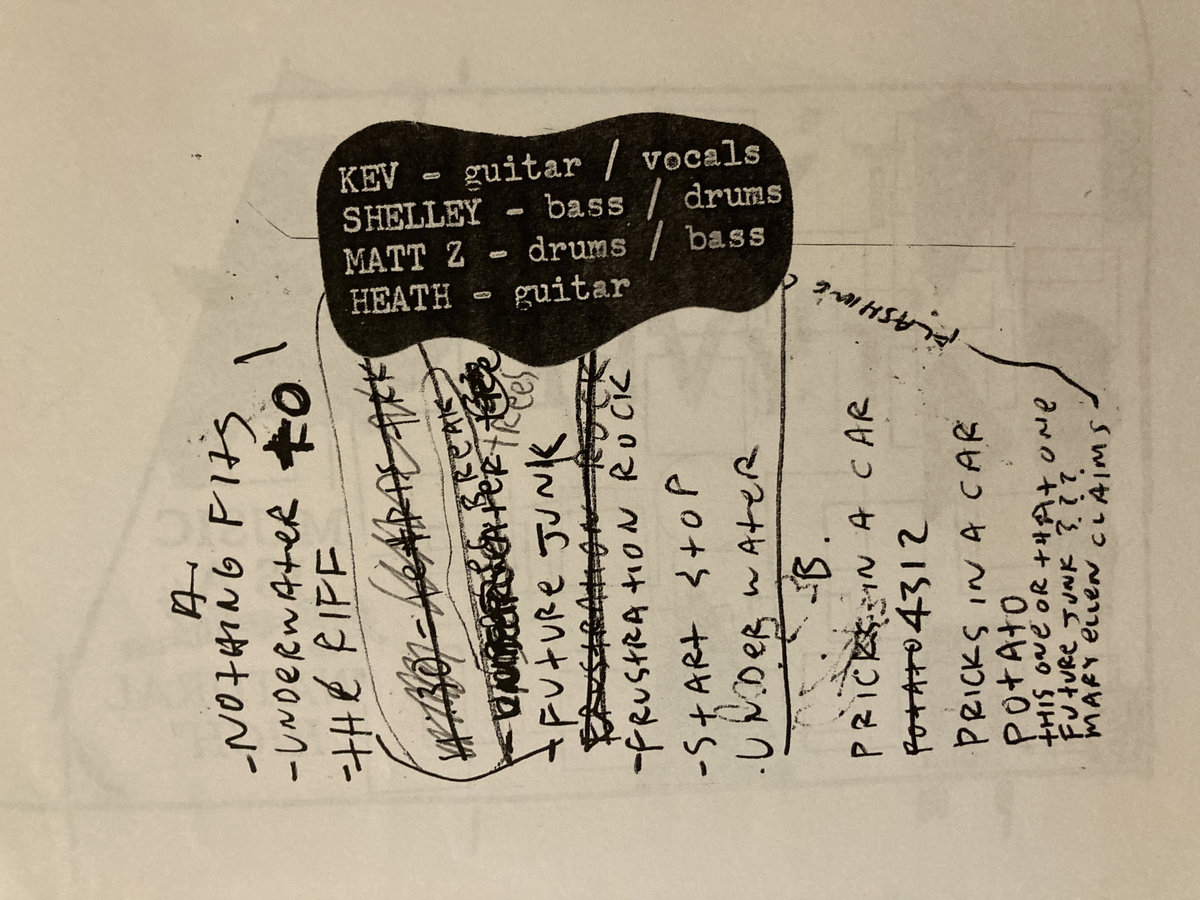 KEV - guitar / vocals
SHELLEY - bass / drums
MATT Z - drums / bass
HEATH - guitar
A.
-NOTHING FITS
-UNDERWATER TO 1
-THE RIFF
BREAK
trees
-FUTURE JUNK
FRUSTRATION ROCK
-FRUSTRATION ROCK
-START STOP
.UNDERWATER
-B.
PRICKS IN A CAR
POTATO 4312
PRICKS IN A CAR
POTATO
THIS ONE OR THAT ONE
FUTURE JUNK ???
MARY ELLEN CLAIMS
FLASHING